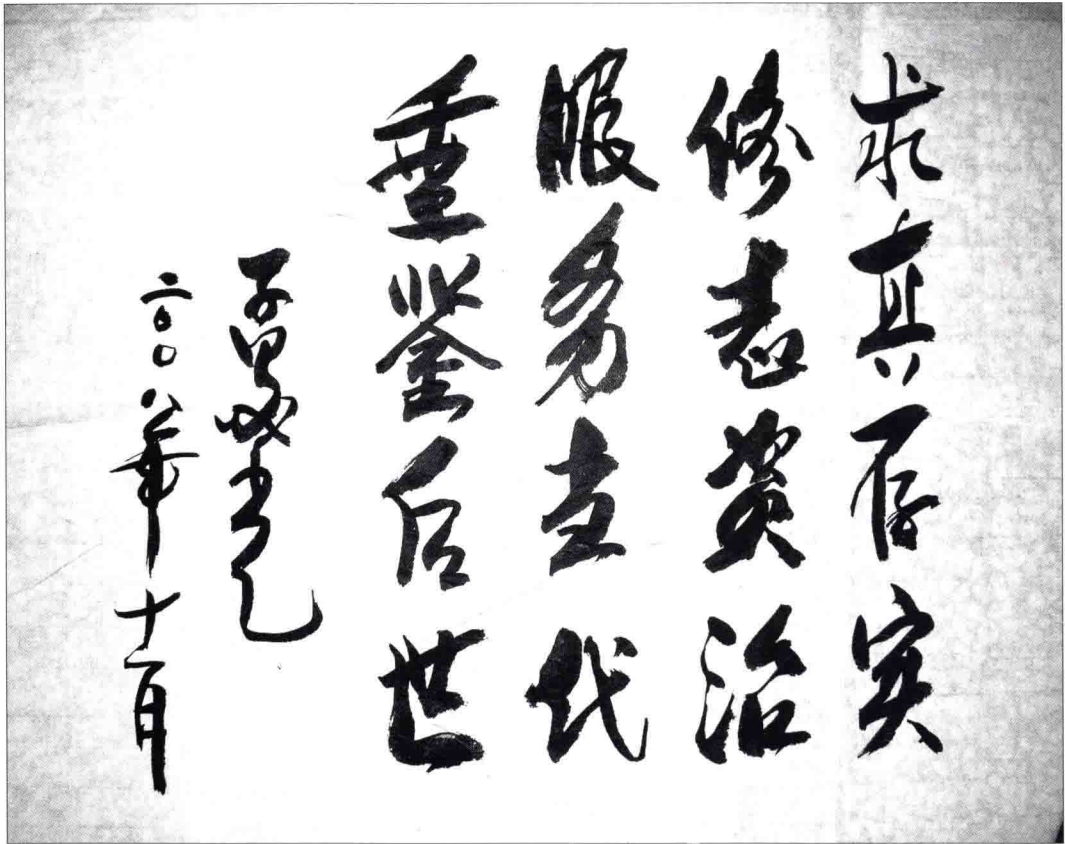 求真存实
修志资治
服务当代
垂鉴后世
二〇〇八年十一月